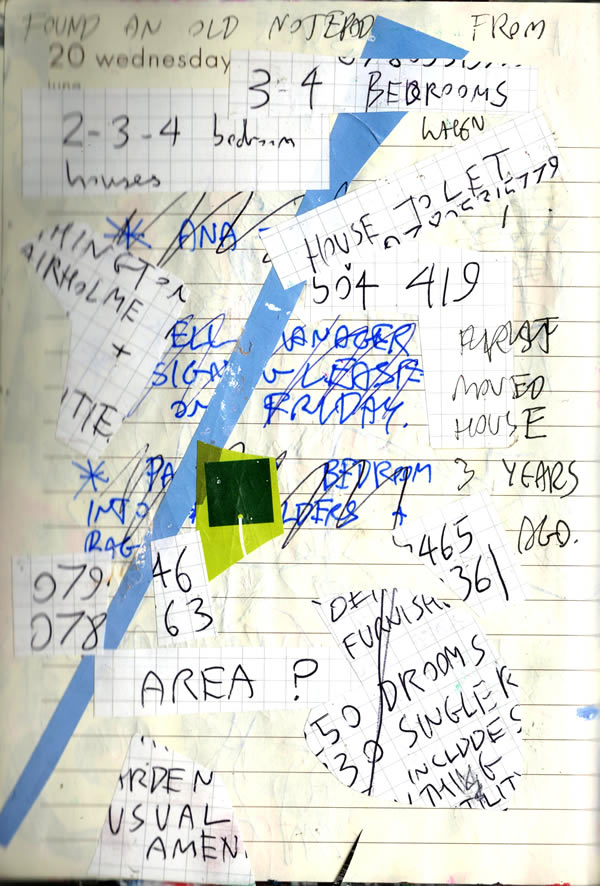 FOUND AN OLD NOTEPAD FROM
20 wednesday
June
3-4 BEDROOMS
WHEN
2-3-4 bedroom
houses
HOUSE TO LET
* ANA -
HINGTON
AIRHOLME
+
TIE.
504 419
ELL MANAGER
SIGN LEASE
ON FRIDAY.
FIRST
MOVED
HOUSE
* PA BEDROOM
INTO LDERS +
RAG
3 YEARS
AGO.
465
361
079
078
46
63
FURNISH
AREA ?
50 DROOMS
30 SINGLE R
INCLUDES
THING
TILIT
RDEN
USUAL
AMEN